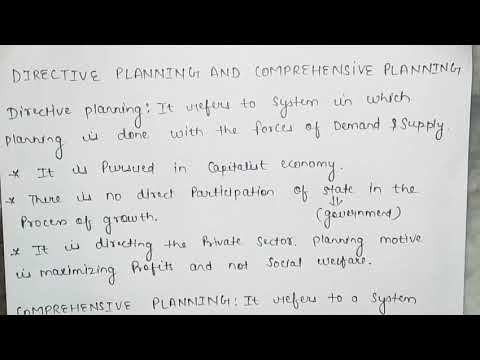 DIRECTIVE PLANNING AND COMPREHENSIVE PLANNING
Directive planning: It refers to System in which
planning is done with the forces of Demand & Supply.
* It is Pursued in Capitalist economy.
* There is no direct Participation of state in the
Process of growth. (government)
* It is directing the Private Sector. planning motive
is maximizing Profits and not Social welfare.
COMPREHENSIVE PLANNING: It refers to a System